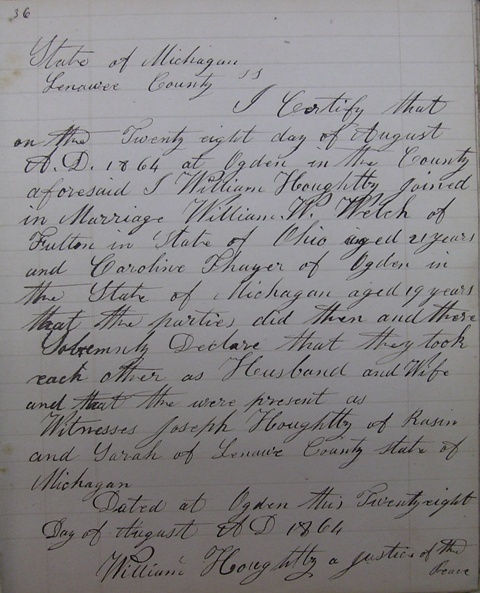 36
State of Michagan
Lenawee County SS
I Certify that
on the Twenty eight day of August
A.D. 1864 at Ogden in the County
aforesaid I William Houghtty joined
in Marriage William W. Welch of
Fulton in State of Ohio aged 21 years
and Caroline Thayer of Ogden in
the State of Michagan aged 19 years
that the parties did then and there
Solvemnty Declare that they took
each other as Husband and Wife
and that the were present as
Witnesses Joseph Houghtty of Rasin
and Sarah of Lenawe County state of
Michagan
Dated at Ogden this Twentyeight
Day of August A D 1864
William Houghtty a justice of the
Peace